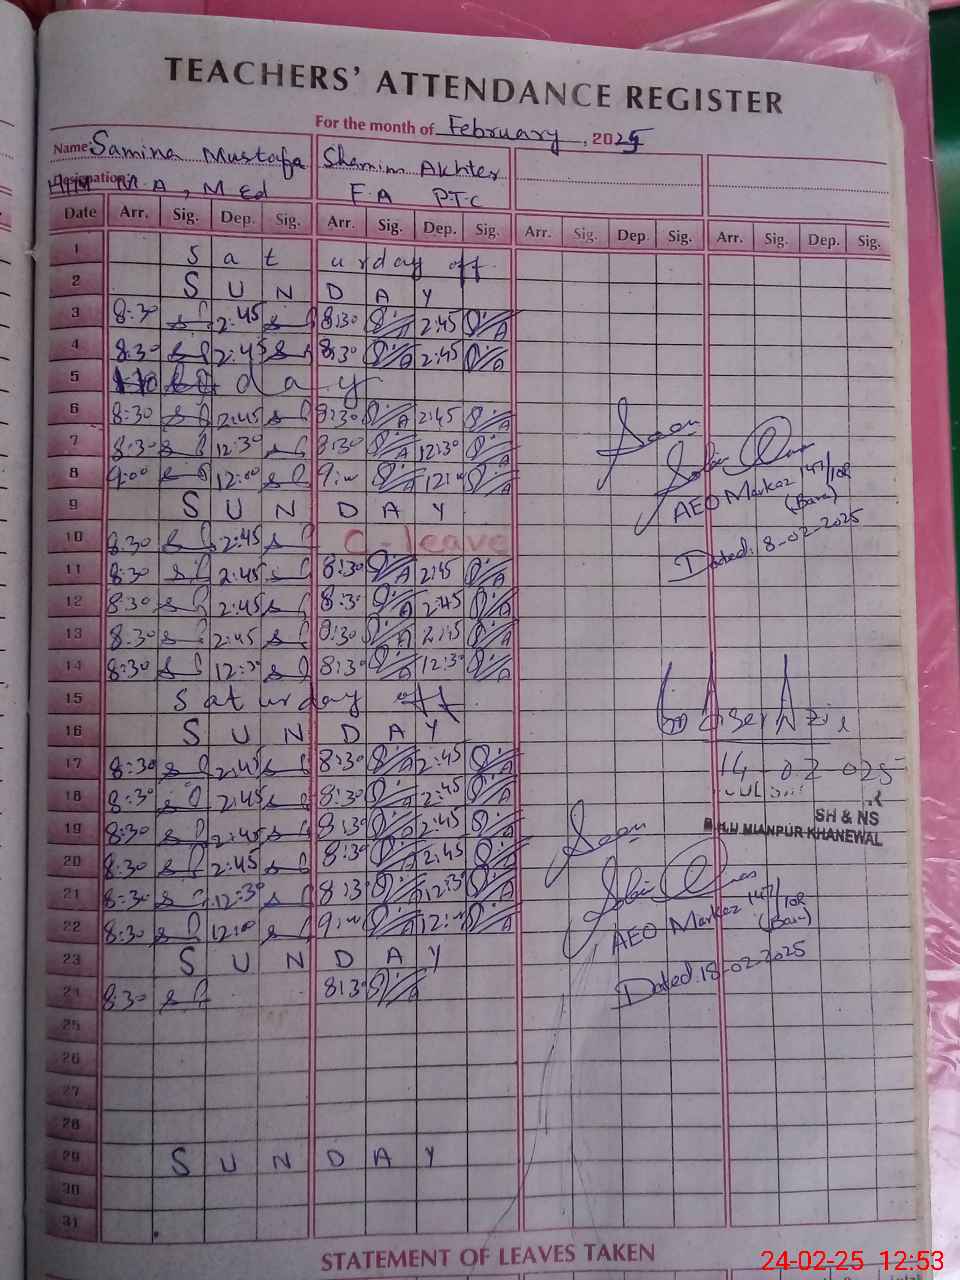 TEACHERS' ATTENDANCE REGISTER
For the month of February, 2025
Name: Samina Mustafa Shamim Akhter
Designation: M.A, M.Ed F.A P.T.C
Date Arr. Sig. Dep. Sig. Arr. Sig. Dep. Sig. Arr. Sig. Dep. Sig. Arr. Sig. Dep. Sig.
1 Saturday off
2 SUNDAY
3 8:30 2:45 8:30 2:45
4 8:30 2:45 8:30 2:45
5 day
6 8:30 2:45 8:30 2:45
7 8:30 12:30 8:30 12:30
8 9:00 12:00 9:00 12:00
9 SUNDAY
10 8:30 2:45 C-leave
11 8:30 2:45 8:30 2:45
12 8:30 2:45 8:30 2:45
13 8:30 2:45 8:30 2:45
14 8:30 12:30 8:30 12:30
15 Saturday off
16 SUNDAY
17 8:30 2:45 8:30 2:45
18 8:30 2:45 8:30 2:45
19 8:30 2:45 8:30 2:45
20 8:30 2:45 8:30 2:45
21 8:30 12:30 8:30 12:30
22 8:30 12:00 9:00 12:00
23 SUNDAY
24 8:30 8:30
25
26
27
28
29 SUNDAY
30
31
AEO Markaz 147/10R
(Bara)
Dated: 8-02-2025
14-02-025
SH & NS
B.H.U MIANPUR KHANEWAL
AEO Markaz 147/10R
(Bara)
Dated: 18-02-2025
STATEMENT OF LEAVES TAKEN
24-02-25 12:53